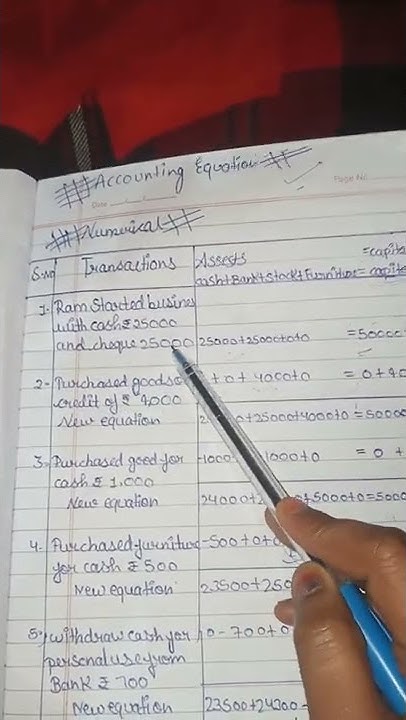 Accounting Equation
Page No.
Date
Numerical
S.No Transactions Assests =capita
cash+Bank+Stock+Furniture= capita
1- Ram Started busines
with cash ₹25000
and cheque 25000 25000+25000+0+0 =50000
2- Purchased goods + 0 + 4000+0 = 0+40
credit of ₹ 4000
New equation +25000+4000+0=50000
3- Purchased good for -1000 1000+0 = 0 +
cash ₹ 1,000
New equation 24000+2 +5000+0=5000
4- Purchased furniture -500+0+0
for cash ₹ 500
New equation 23500+250
5- withdraw cash for 0-700+0
personal use from
Bank ₹ 700
New equation 23500+24300-